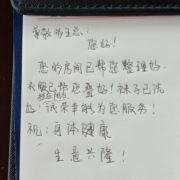 尊敬的王总：
您好！
您的房间已帮您整理好，
衣服已帮您叠好！袜子已洗
好！很荣幸能为您服务！
祝：身体健康
生意兴隆！